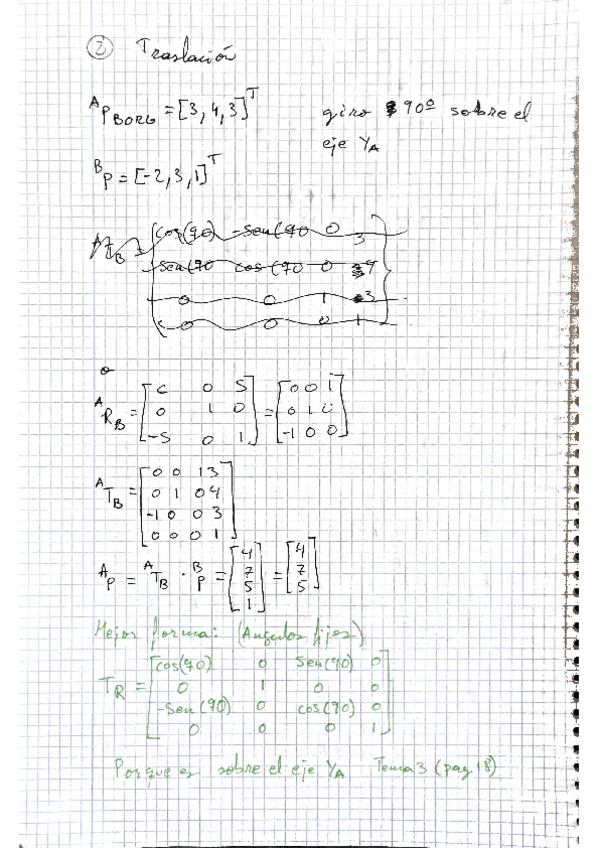 ② Traslación
ᴬP BORG = [3, 4, 3]ᵀ giro 90º sobre el
eje Y_A
ᴮP = [-2, 3, 1]ᵀ
ᴬT_B = [cos(90) -sen(90 0 3
sen(90 cos(90 0 4
0 0 1 3
0 0 0 1]
ᴬR_B = [C 0 S; 0 1 0; -S 0 1] = [0 0 1; 0 1 0; -1 0 0]
ᴬT_B = [0 0 1 3
0 1 0 4
-1 0 0 3
0 0 0 1]
ᴬP = ᴬT_B · ᴮP = [4; 7; 5; 1] = [4; 7; 5]
Mejor forma: (Angulos fijos)
T_R = [cos(90) 0 sen(90) 0
0 1 0 0
-sen(90) 0 cos(90) 0
0 0 0 1]
Porque es sobre el eje Y_A Tema 3 (pag 18)